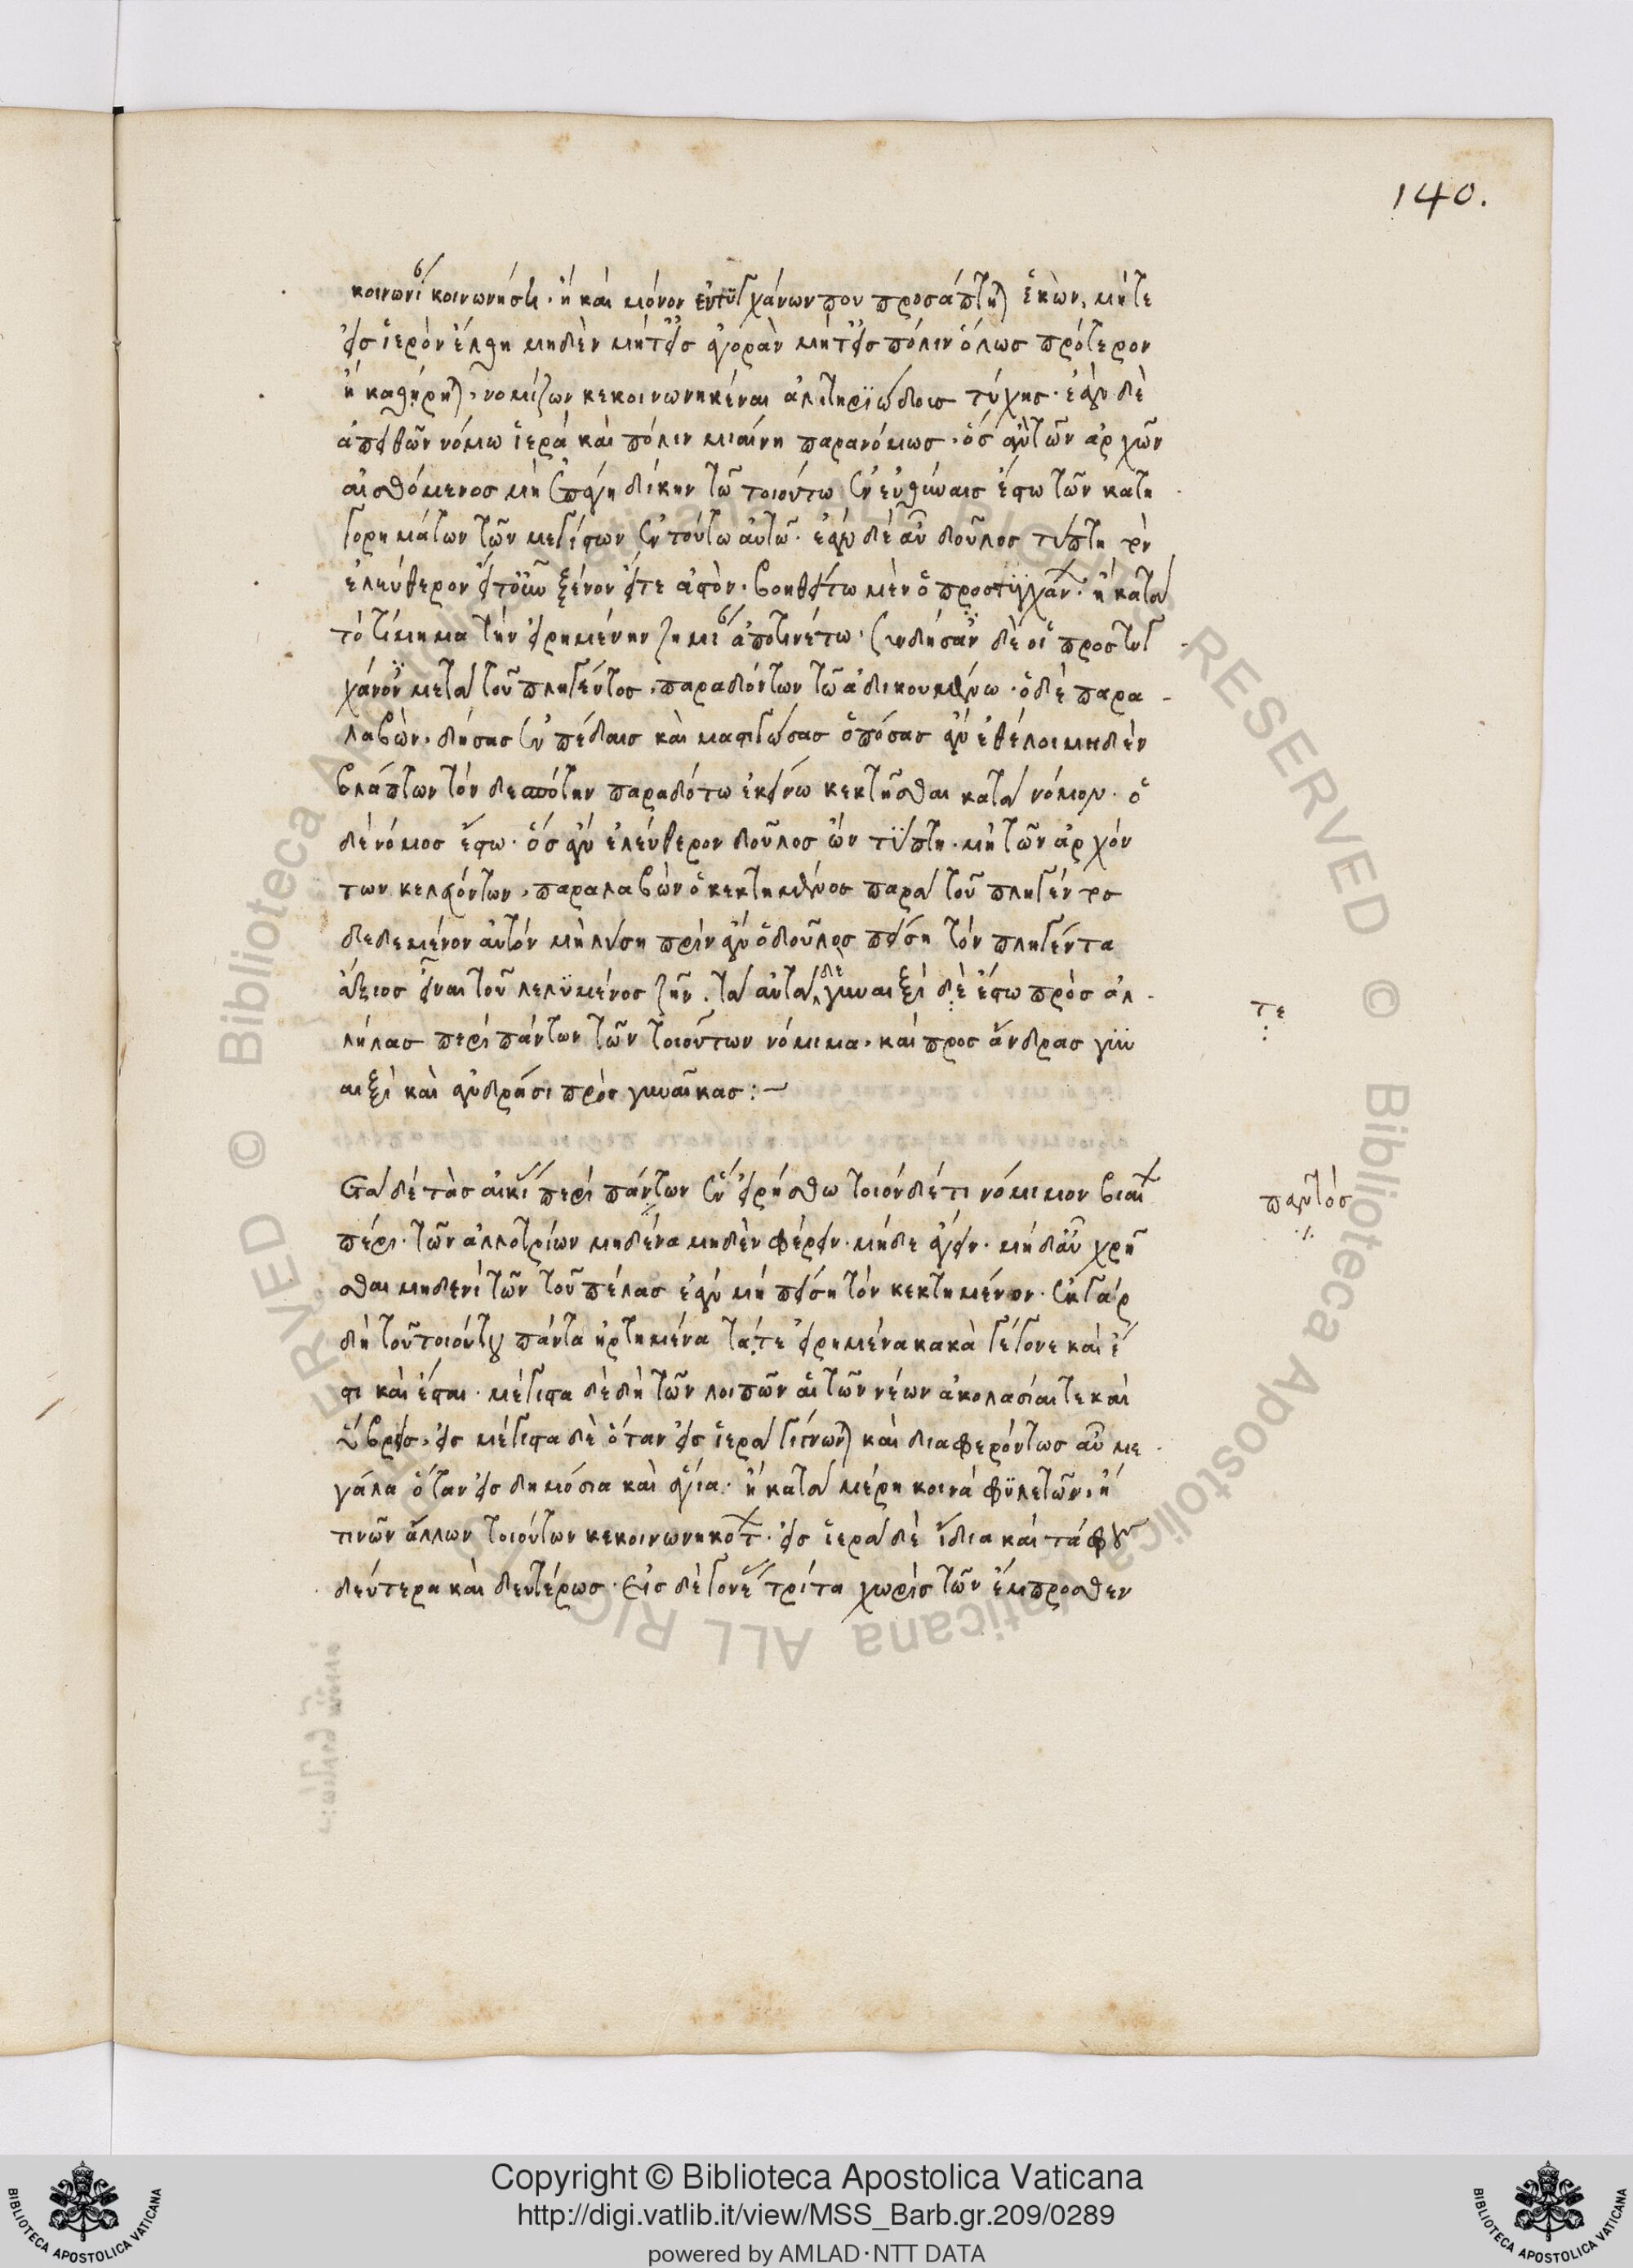 140.
κοινωνίαν κοινωνήση. ἢ καὶ μόνον ἐντυγχάνων που προσάπτηται ἑκών, μήτε
εἰς ἱερὸν ἔλθη μηδὲν μήτ' εἰς ἀγορὰν μήτ' εἰς πόλιν ὅλως πρότερον
ἢ καθήρηται, νομίζων κεκοινωνηκέναι ἀλιτηριώδους τύχης. ἐὰν δὲ
ἀπειθῶν νόμω ἱερὰ καὶ πόλιν μιαίνη παρανόμως, ὃς ἂν τῶν ἀρχῶν
αἰσθόμενος μὴ ἐπάγη δίκην τῶ τοιούτω ἐν εὐθύναις ἔστω τῶν κατη
γορημάτων τῶν μεγίστων ἓν τοῦτο αὐτῶ. ἐὰν δὲ αὖ δοῦλος τύπτη τὸν
ἐλεύθερον εἴτ' οὖν ξένον εἴτε ἀστὸν. βοηθείτω μὲν ὁ προστυγχάνων. ἢ κατὰ
τὸ τίμημα τὴν εἰρημένην ζημίαν ἀποτινέτω. συνδησάντων δὲ οἱ προστυγ
χάνοντες μετὰ τοῦ πληγέντος, παραδόντων τῶ ἀδικουμένω. ὁ δὲ παρα-
λαβὼν. δήσας ἐν πέδαις καὶ μαστιγώσας ὁπόσας ἂν ἐθέλοι μηδὲν
βλάπτων τὸν δεσπότην παραδότω ἐκείνω κεκτῆσθαι κατὰ νόμον. ὁ
δὲ νόμος ἔστω. ὃς ἂν ἐλεύθερον δοῦλος ὢν τύπτη. μὴ τῶν ἀρχόν
των κελευόντων, παραλαβὼν ὁ κεκτημένος παρὰ τοῦ πληγέντος
δεδεμένον αὐτὸν μὴ λύση πρὶν ἂν ὁ δοῦλος πείση τὸν πληγέντα
ἄξιος εἶναι τοῦ λελυμένος ζῆν. τὰ αὐτὰ δὲ γυναιξί δὲ ἔστω πρὸς ἀλ-
λήλας περὶ πάντων τῶν τοιούτων νόμιμα, καὶ πρὸς ἄνδρας γυν
αιξὶ καὶ ἀνδράσι πρὸς γυναῖκας:~
τε
Μετὰ δὲ τὰς αἰκίας περὶ πάντων ἓν εἰρήσθω τοιόνδέ τι νόμιμον βιαίων
παντός
πέρι. τῶν ἀλλοτρίων μηδένα μηδὲν φέρειν. μήδε ἄγειν. μήδ' αὖ χρῆ
σθαι μηδενὶ τῶν τοῦ πέλας ἐὰν μὴ πείση τὸν κεκτημένον. ἐκ γὰρ
δὴ τοῦ τοιούτου πάντα ἠρτημένα τά τε εἰρημένα κακὰ γέγονε καὶ ἔ
στι καὶ ἔσται. μέγιστα δὲ δὴ τῶν λοιπῶν αἱ τῶν νέων ἀκολασίαι τε καὶ
ὕβρεις. εἰς μέγιστα δὲ ὅταν εἰς ἱερὰ γίγνωνται καὶ διαφερόντως αὖ με
γάλα ὅταν εἰς δημόσια καὶ ἅγια. ἢ κατὰ μέρη κοινὰ φυλετῶν. ἤ
τινων ἄλλων τοιούτων κεκοινωνηκότων. εἰς ἱερὰ δὲ ἴδια καὶ τάφους
δεύτερα καὶ δευτέρως. εἰς δὲ γονέας τρίτα χωρὶς τῶν ἔμπροσθεν
Copyright © Biblioteca Apostolica Vaticana
http://digi.vatlib.it/view/MSS_Barb.gr.209/0289
powered by AMLAD·NTT DATA